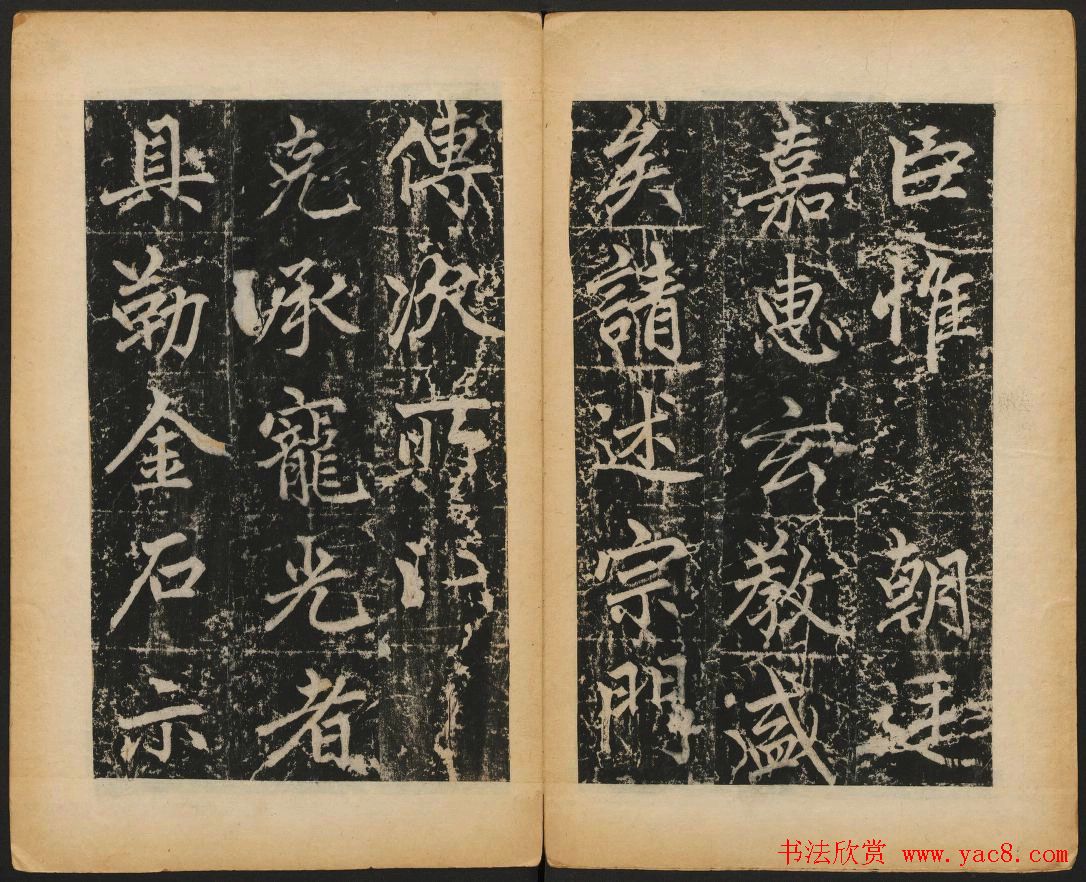 臣惟朝廷
嘉惠玄教盛
矣請述宗門
傳次所以
克承寵光者
具勒金石示
书法欣赏 www.yac8.com